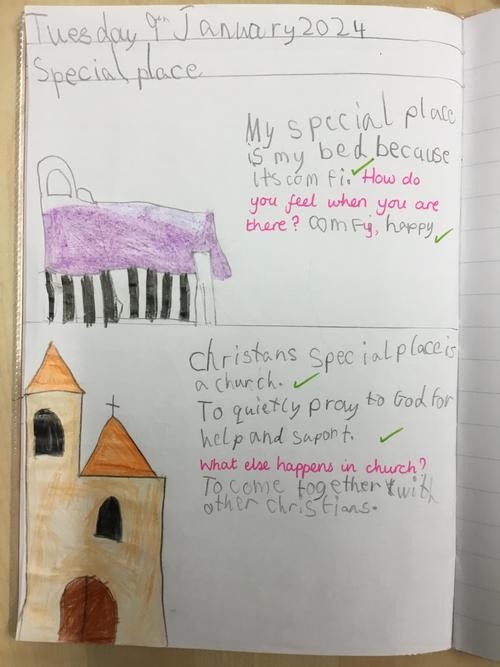 Tuesday 9th January 2024
Special place
My special place
is my bed because
its comfi. How do
you feel when you are
there? comfy, happy
christans special place is
a church.
To quietly pray to God for
help and suport.
What else happens in church?
To come together with
other christians.